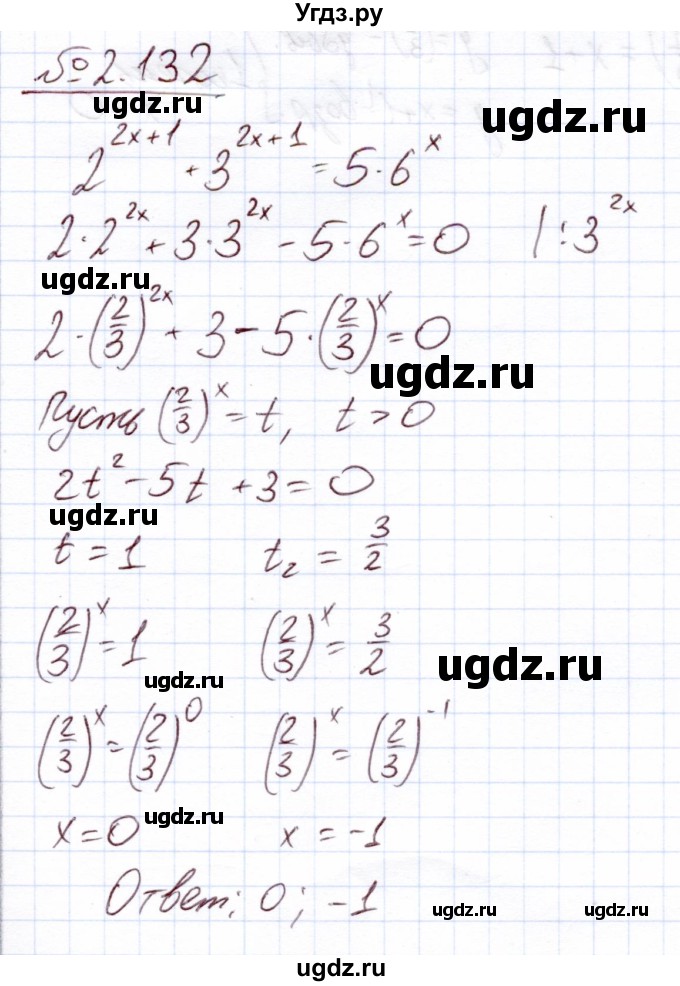 Угдз.ру
№2.132
ugdz.ru ugdz.ru
2^(2x+1) + 3^(2x+1) = 5·6^x
2·2^(2x) + 3·3^(2x) - 5·6^x = 0 |:3^(2x)
ugdz.ru
2·(2/3)^(2x) + 3 - 5·(2/3)^x = 0
ugdz.ru
Пусть (2/3)^x = t, t > 0
2t^2 - 5t + 3 = 0
ugdz.ru
t = 1 t₂ = 3/2
(2/3)^x = 1 (2/3)^x = 3/2
ugdz.ru ugdz.ru
(2/3)^x = (2/3)^0 (2/3)^x = (2/3)^(-1)
x = 0 x = -1
ugdz.ru
Ответ: 0; -1
ugdz.ru ugdz.ru
ugdz.ru